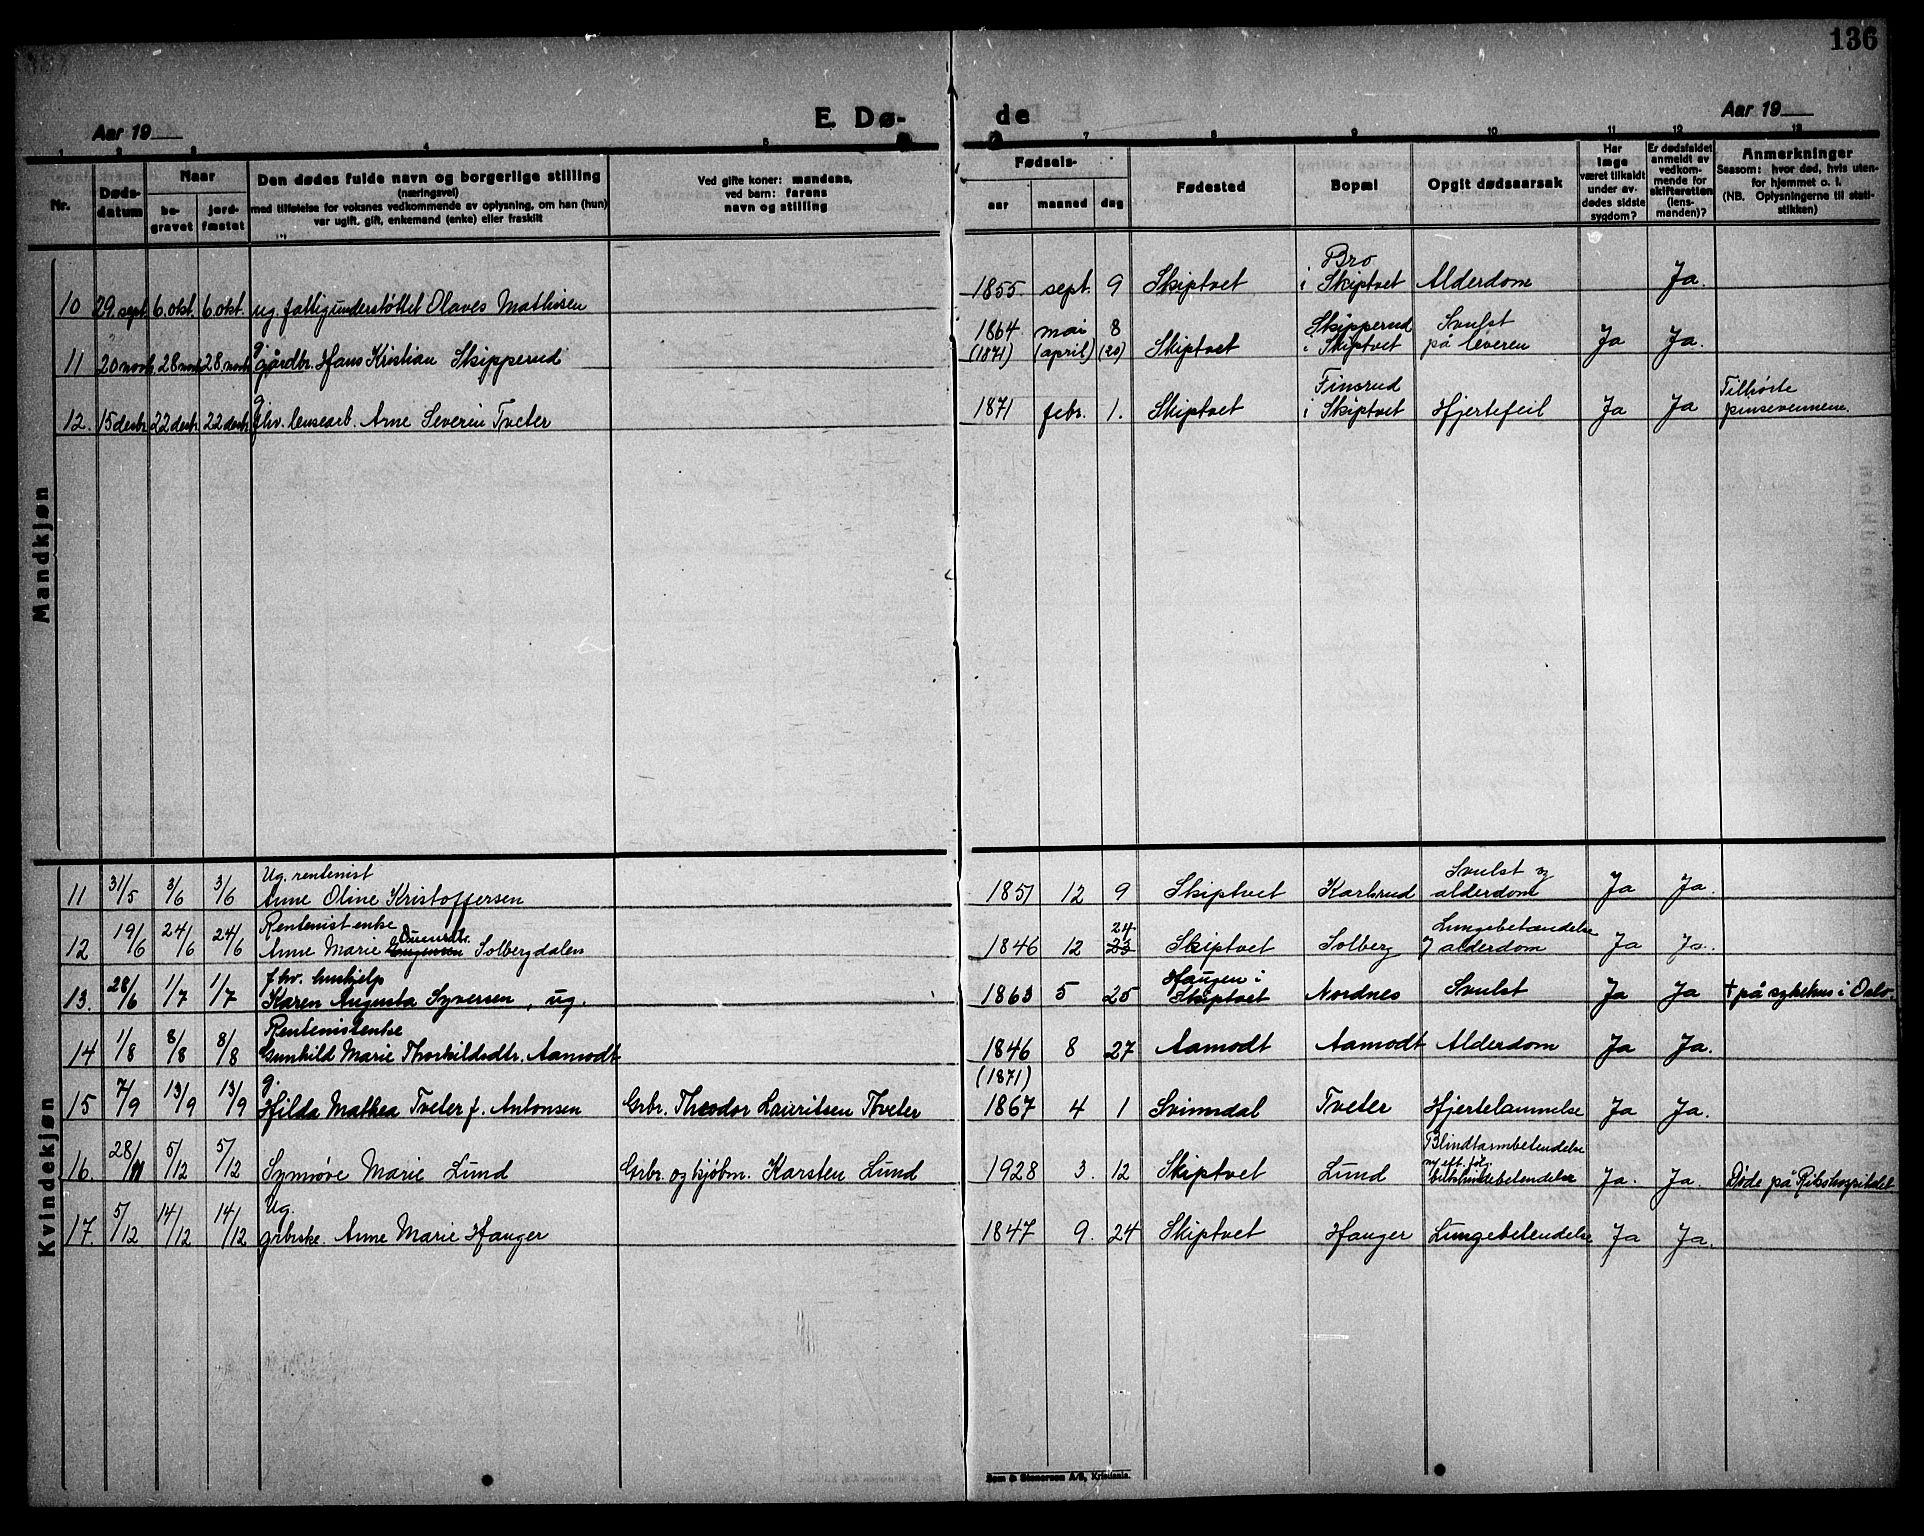 136
Aar 19
E. Dø-
de
Aar 19
1 2 3 4 5 6 7 8 9 10 11 12 13
Nr.
Døds-
datum
Naar
be-
gravet
jord-
fæstet
Den dødes fulde navn og borgerlige stilling
(næringsvei)
med tilføielse for voksnes vedkommende av oplysning, om han (hun)
var ugift, gift, enkemand (enke) eller fraskilt
Ved gifte koner: mandens,
ved barn: farens
navn og stilling
Fødsels-
aar
maaned
dag
Fødested
Bopæl
Opgit dødsaarsak
Har
læge
været tilkaldt
under av-
dødes sidste
sygdom?
Er dødsfaldet
anmeldt av
vedkom-
mende for
skifteretten
(lens-
manden)?
Anmerkninger
Saasom: hvor død, hvis uten-
for hjemmet o. l.
(NB. Oplysningerne til stati-
stikken)
Mandkjøn
10 29. sept. 6. okt. 6. okt. ug. fattigunderstøttet Olaves Mathisen 1855 sept. 9 Skiptvet Bro
i Skiptvet Alderdom Ja.
11 20 novb. 28 novb. 28 novb. g.
gårdbr. Hans Kristian Skipperud 1864 mai 8
(1871) (april) (20) Skiptvet Skipperud
i Skiptvet Svulst
på leveren Ja Ja.
12. 15 desbr. 22 desbr. 22 desbr. g.
fhv. lensearb. Arne Severin Tveter 1871 febr. 1. Skiptvet Finsrud
i Skiptvet Hjertefeil Ja Ja Tilhørte
pinsevennene.
Kvindekjøn
11 31/5 3/6 3/6 Ug. rentenist
Anne Oline Kristoffersen 1851 12 9 Skiptvet Karlsrud Svulst og
alderdom Ja Ja.
12 19/6 24/6 24/6 Rentenist enke
Anne Marie Solbergdalen 1846 12 24
23 Skiptvet Solberg Lungebetændelse
og alderdom Ja Ja.
13. 28/6 1/7 1/7 fhv. hushjelp
Karen Augusta Syversen, ug. 1863 5 25 Haugen i
Skiptvet Nordnes Svulst Ja Ja + på sykehus i Oslo.
14 1/8 8/8 8/8 Rentenistenke
Gunhild Marie Thorkildsdtr. Aamodt 1846 8 27 Aamodt Aamodt Alderdom Ja Ja.
15 7/9 13/9 13/9 g.
Hilda Mathea Tveter f. Antonsen Grbr. Theodor Lauritsen Thveter (1871)
1867 4 1 Svinndal Tveter Hjertelammelse Ja Ja.
16. 28/11 5/12 5/12 Synnøve Marie Lund Grbr. og kjøbm. Karsten Lund 1928 3. 12 Skiptvet Lund Blindtarmbetendelse
og eft. følg.
bukhindebetendelse Ja. Ja. Døde på Rikshospitalet
17. 5/12 14/12 14/12 Ug.
grbrske. Anne Marie Hauger 1847 9. 24 Skiptvet Hauger Lungebetendelse Ja Ja.
Sem & Stenersen A/S, Kristiania.